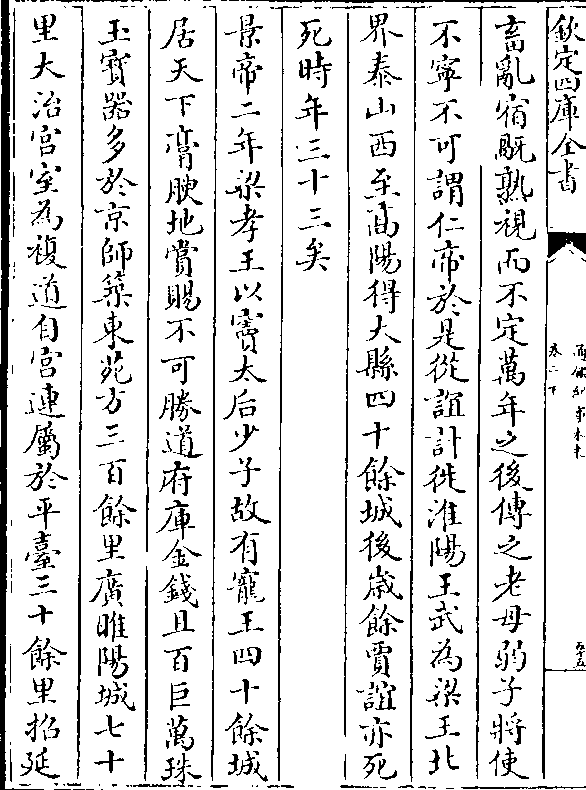 欽定四庫全書
通鑑紀事本末
卷二下
畜亂宿禍熟視而不定萬年之後傳之老母弱子將使
不寧不可謂仁帝於是從誼計徙淮陽王武為梁王北
界泰山西至高陽得大縣四十餘城後歲餘賈誼亦死
死時年三十三矣
景帝二年梁孝王以竇太后少子故有寵王四十餘城
居天下膏腴地賞賜不可勝道府庫金錢且百巨萬珠
玉寶器多於京師築東苑方三百餘里廣睢陽城七十
里大治宮室為複道自宮連屬於平臺三十餘里招延